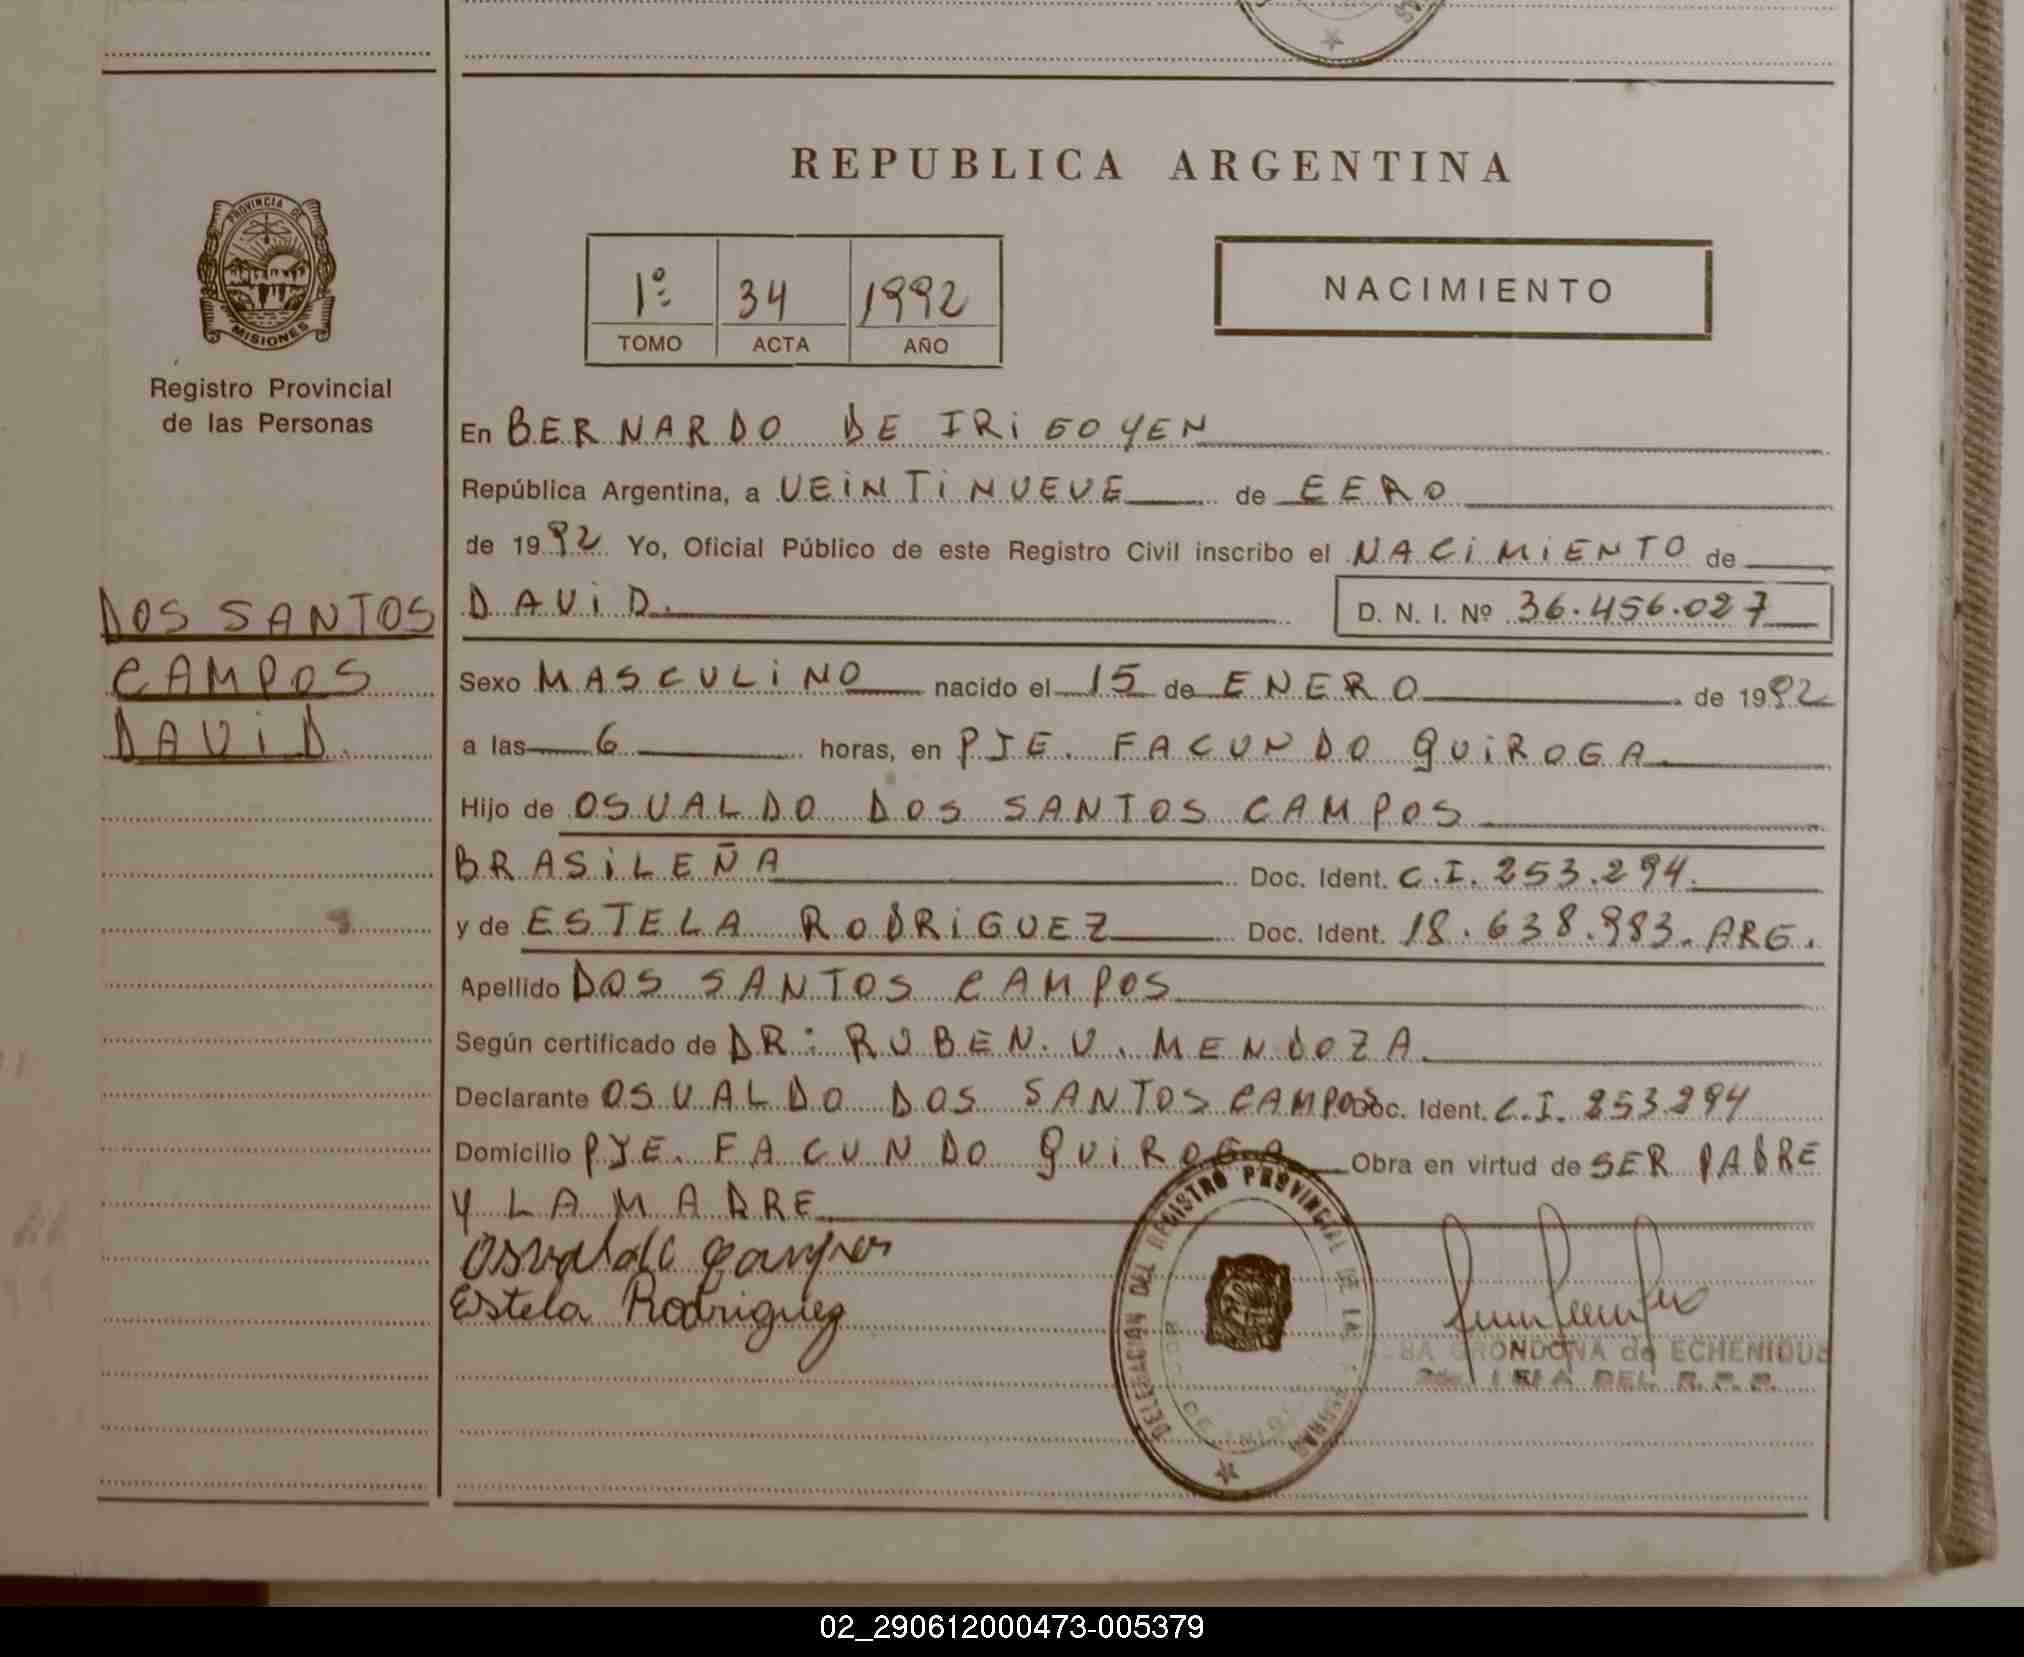 REPUBLICA ARGENTINA
PROVINCIA DE
MISIONES
Registro Provincial
de las Personas
1º 34 1992
TOMO ACTA AÑO
NACIMIENTO
En BERNARDO DE IRIGOYEN
República Argentina, a VEINTINUEVE de EERO
de 1992 Yo, Oficial Público de este Registro Civil inscribo el NACIMIENTO de
DOS SANTOS
CAMPOS
DAVID.
DAVID. D. N. I. Nº 36.456.027
Sexo MASCULINO nacido el 15 de ENERO de 1992
a las 6 horas, en PJE. FACUNDO QUIROGA
Hijo de OSVALDO DOS SANTOS CAMPOS
BRASILEÑA Doc. Ident. C.I. 253.294.
y de ESTELA RODRIGUEZ Doc. Ident. 18.638.983. ARG.
Apellido DOS SANTOS CAMPOS
Según certificado de DR: RUBEN. V. MENDOZA
Declarante OSVALDO DOS SANTOS CAMPOS Doc. Ident. C.I. 253.294
Domicilio PJE. FACUNDO QUIROGA Obra en virtud de SER PADRE
Y LA MADRE
Osvaldo Campos
Estela Rodriguez
DELEGACION DEL REGISTRO PROVINCIAL DE LAS PERSONAS
GRONDONA de ECHENIQUE
DEL R.P.P.
02_290612000473-005379